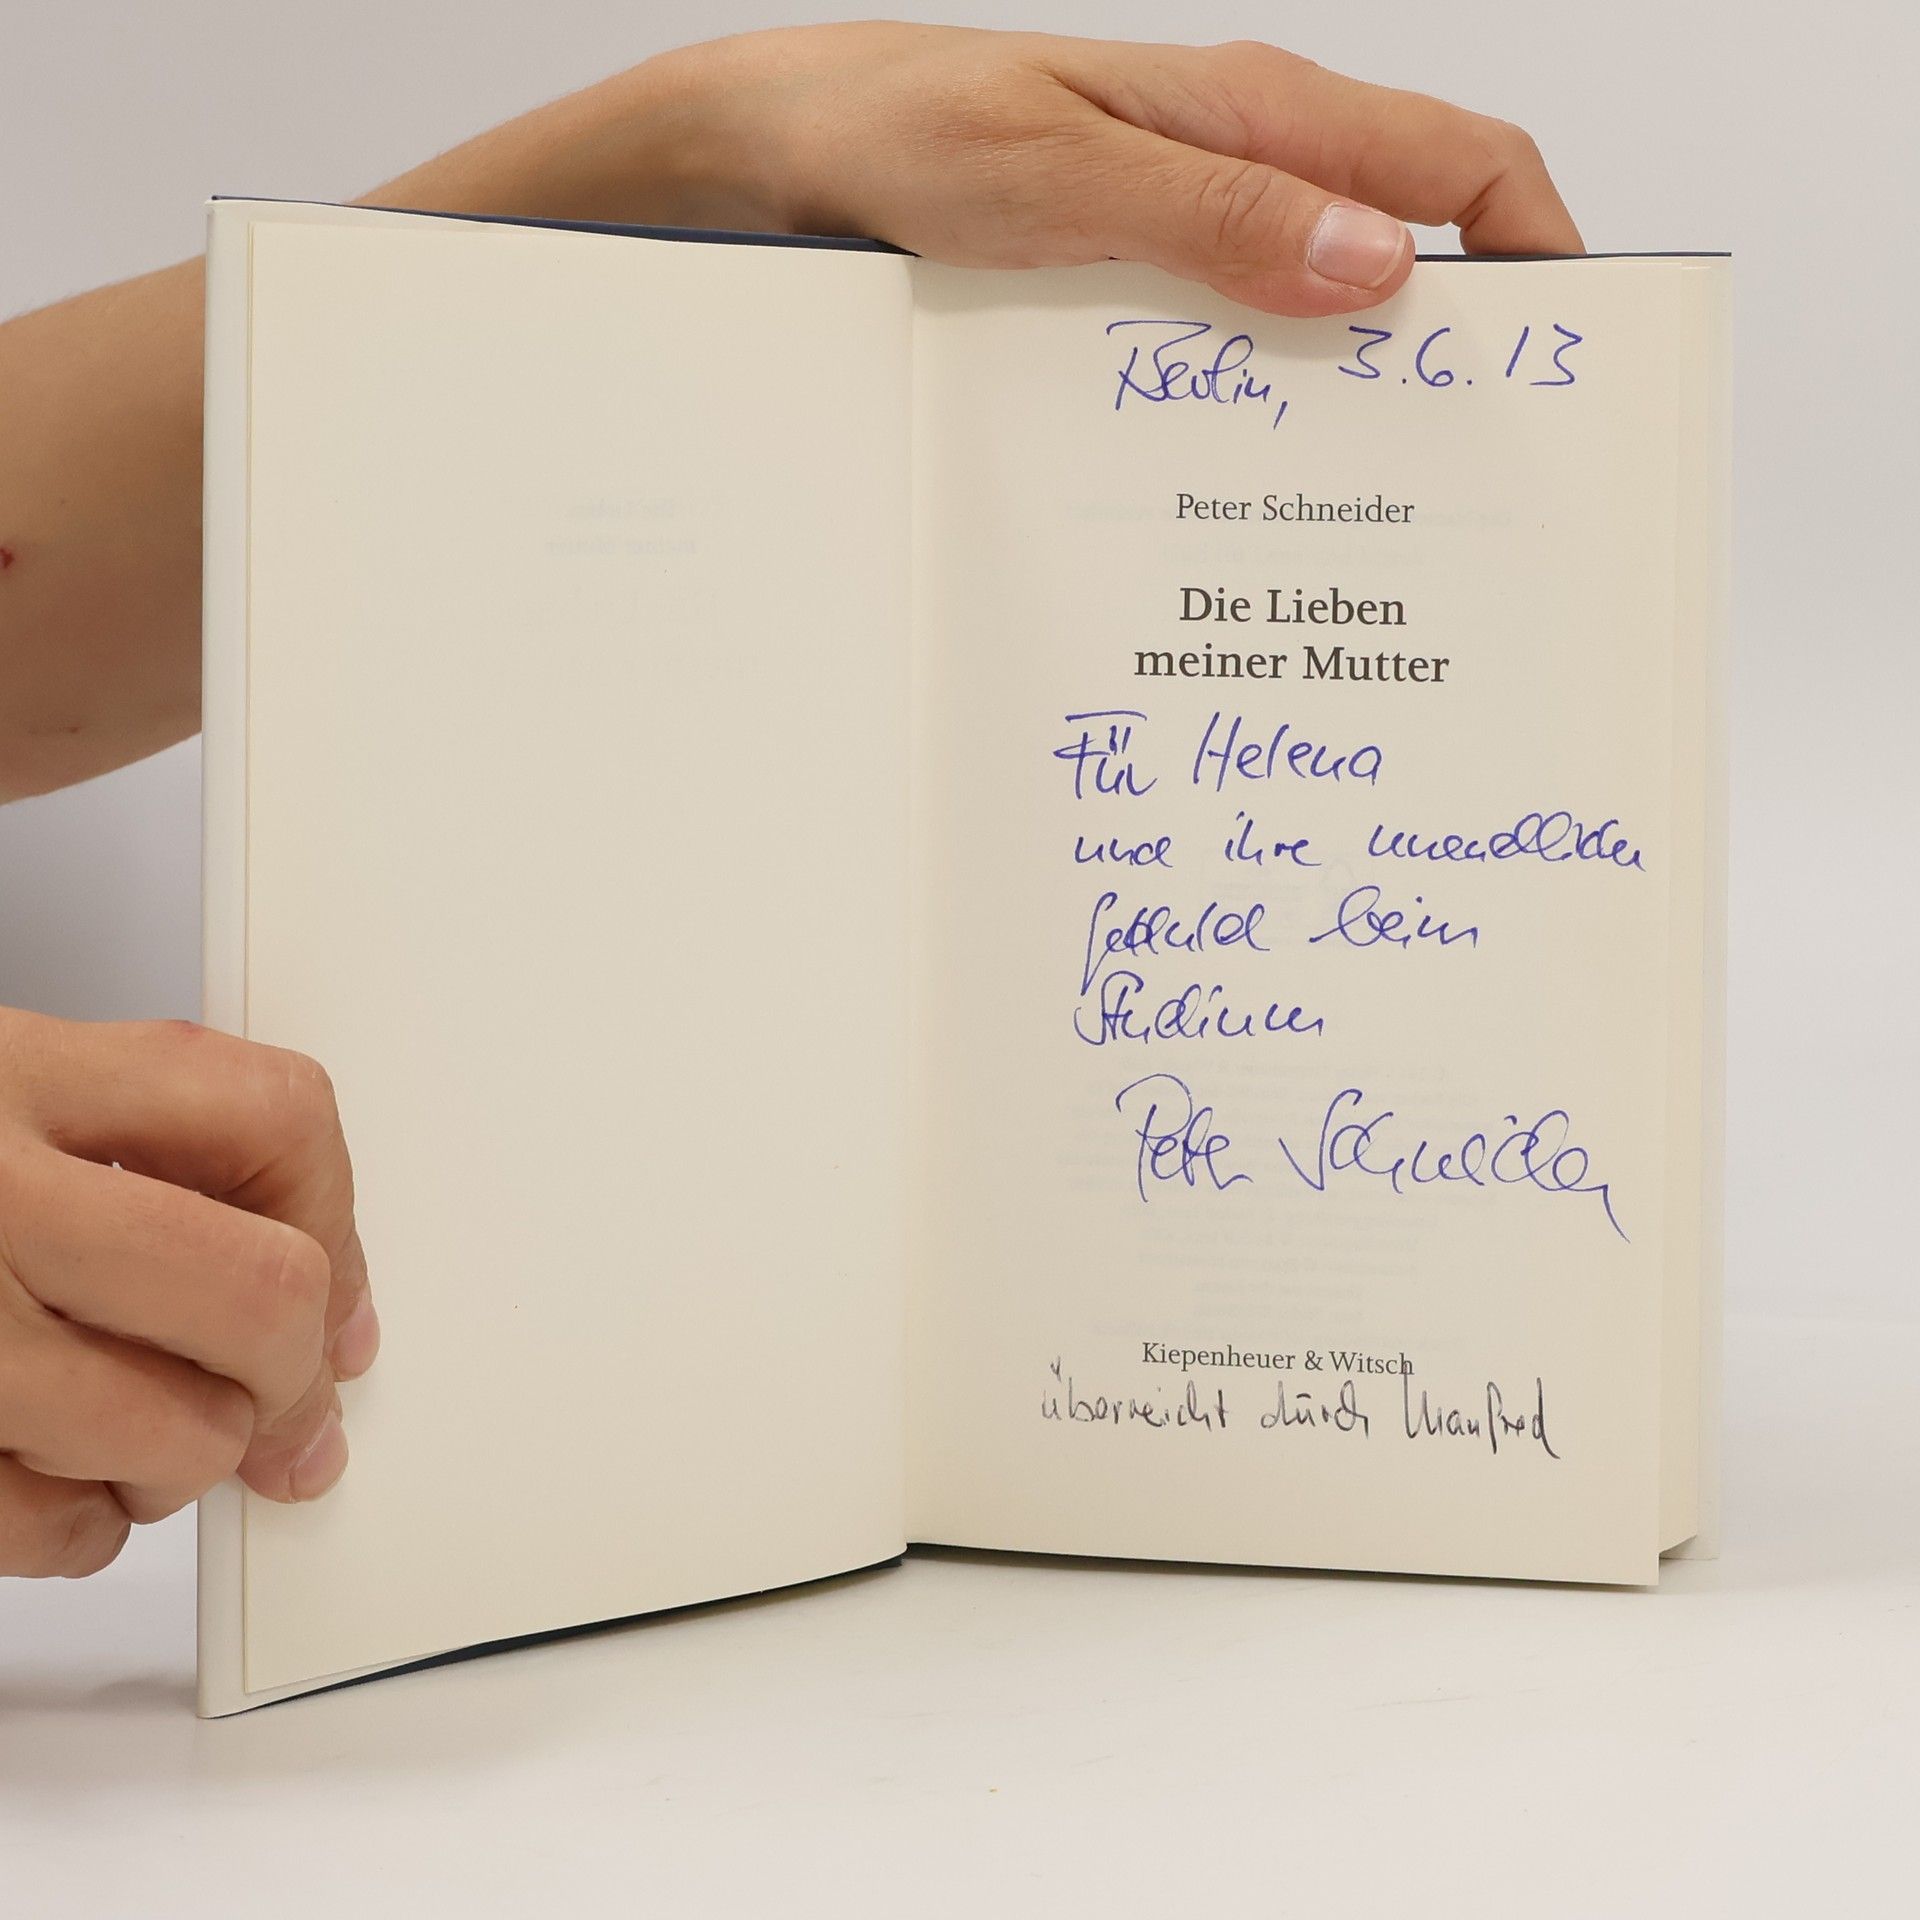 Berlin, 3.6.13
Peter Schneider
Die Lieben
meiner Mutter
Für Helena
und ihre unendliche
Geduld beim
Studium
Peter Schneider
Kiepenheuer & Witsch
überreicht durch Manfred